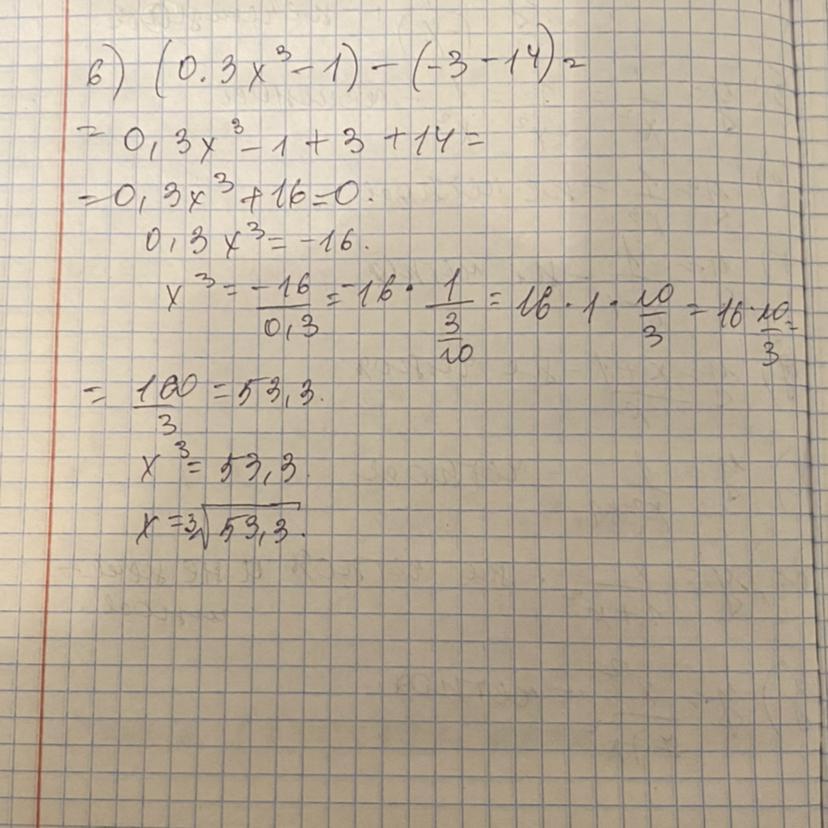 б) (0.3x³-1)-(-3-14)=
= 0,3x³-1+3+14=
=0,3x³+16=0.
0,3x³=-16.
x³=\frac{-16}{0,3}=-16·\frac{1}{\frac{3}{10}}=16·1·\frac{10}{3}=16·\frac{10}{3}=
=\frac{160}{3}=53,3.
x³=53,3.
x=∛53,3.